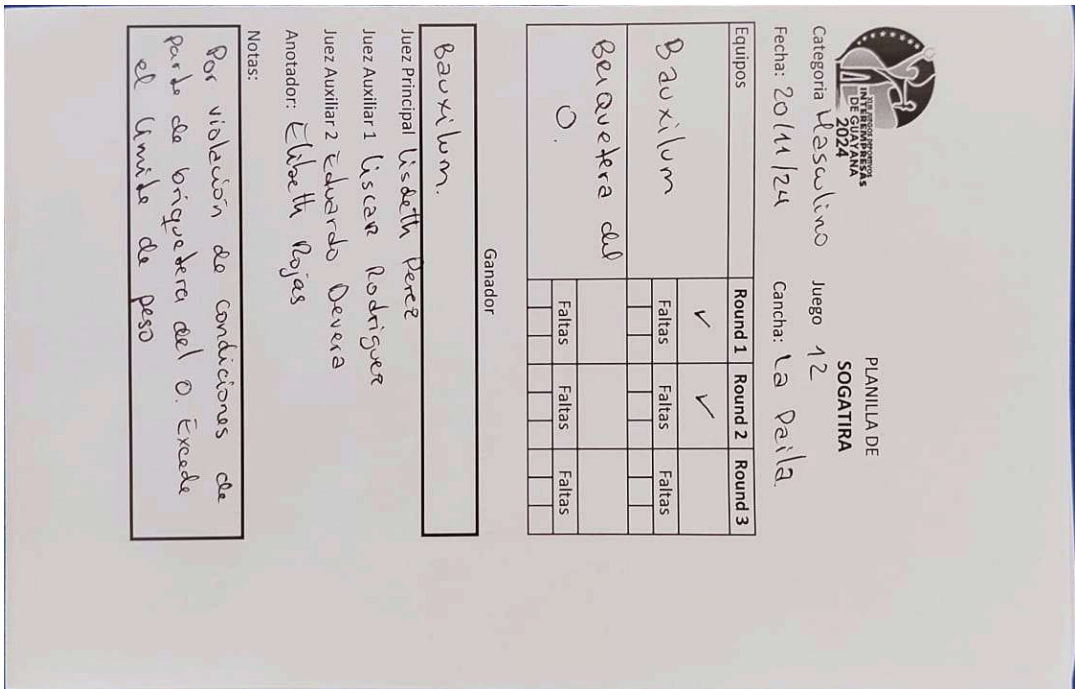 XLIII JUEGOS DEPORTIVOS
INTEREMPRESAS
DE GUAYANA
2024
PLANILLA DE
SOGATIRA
Categoria Masculino Juego 12
Fecha: 20/11/24 Cancha: La Paila.
Equipos Round 1 Round 2 Round 3
Bauxilum ✓ ✓
Faltas Faltas Faltas
Beiquetera del
O.
Faltas Faltas Faltas
Ganador
Bauxilum.
Juez Principal Lisdeth Perez
Juez Auxiliar 1 Liscar Rodriguez
Juez Auxiliar 2 Eduardo Devera
Anotador: Elibeth Rojas
Notas:
Por violación de condiciones de
parte de briquetera del O. Excede
el límite de peso